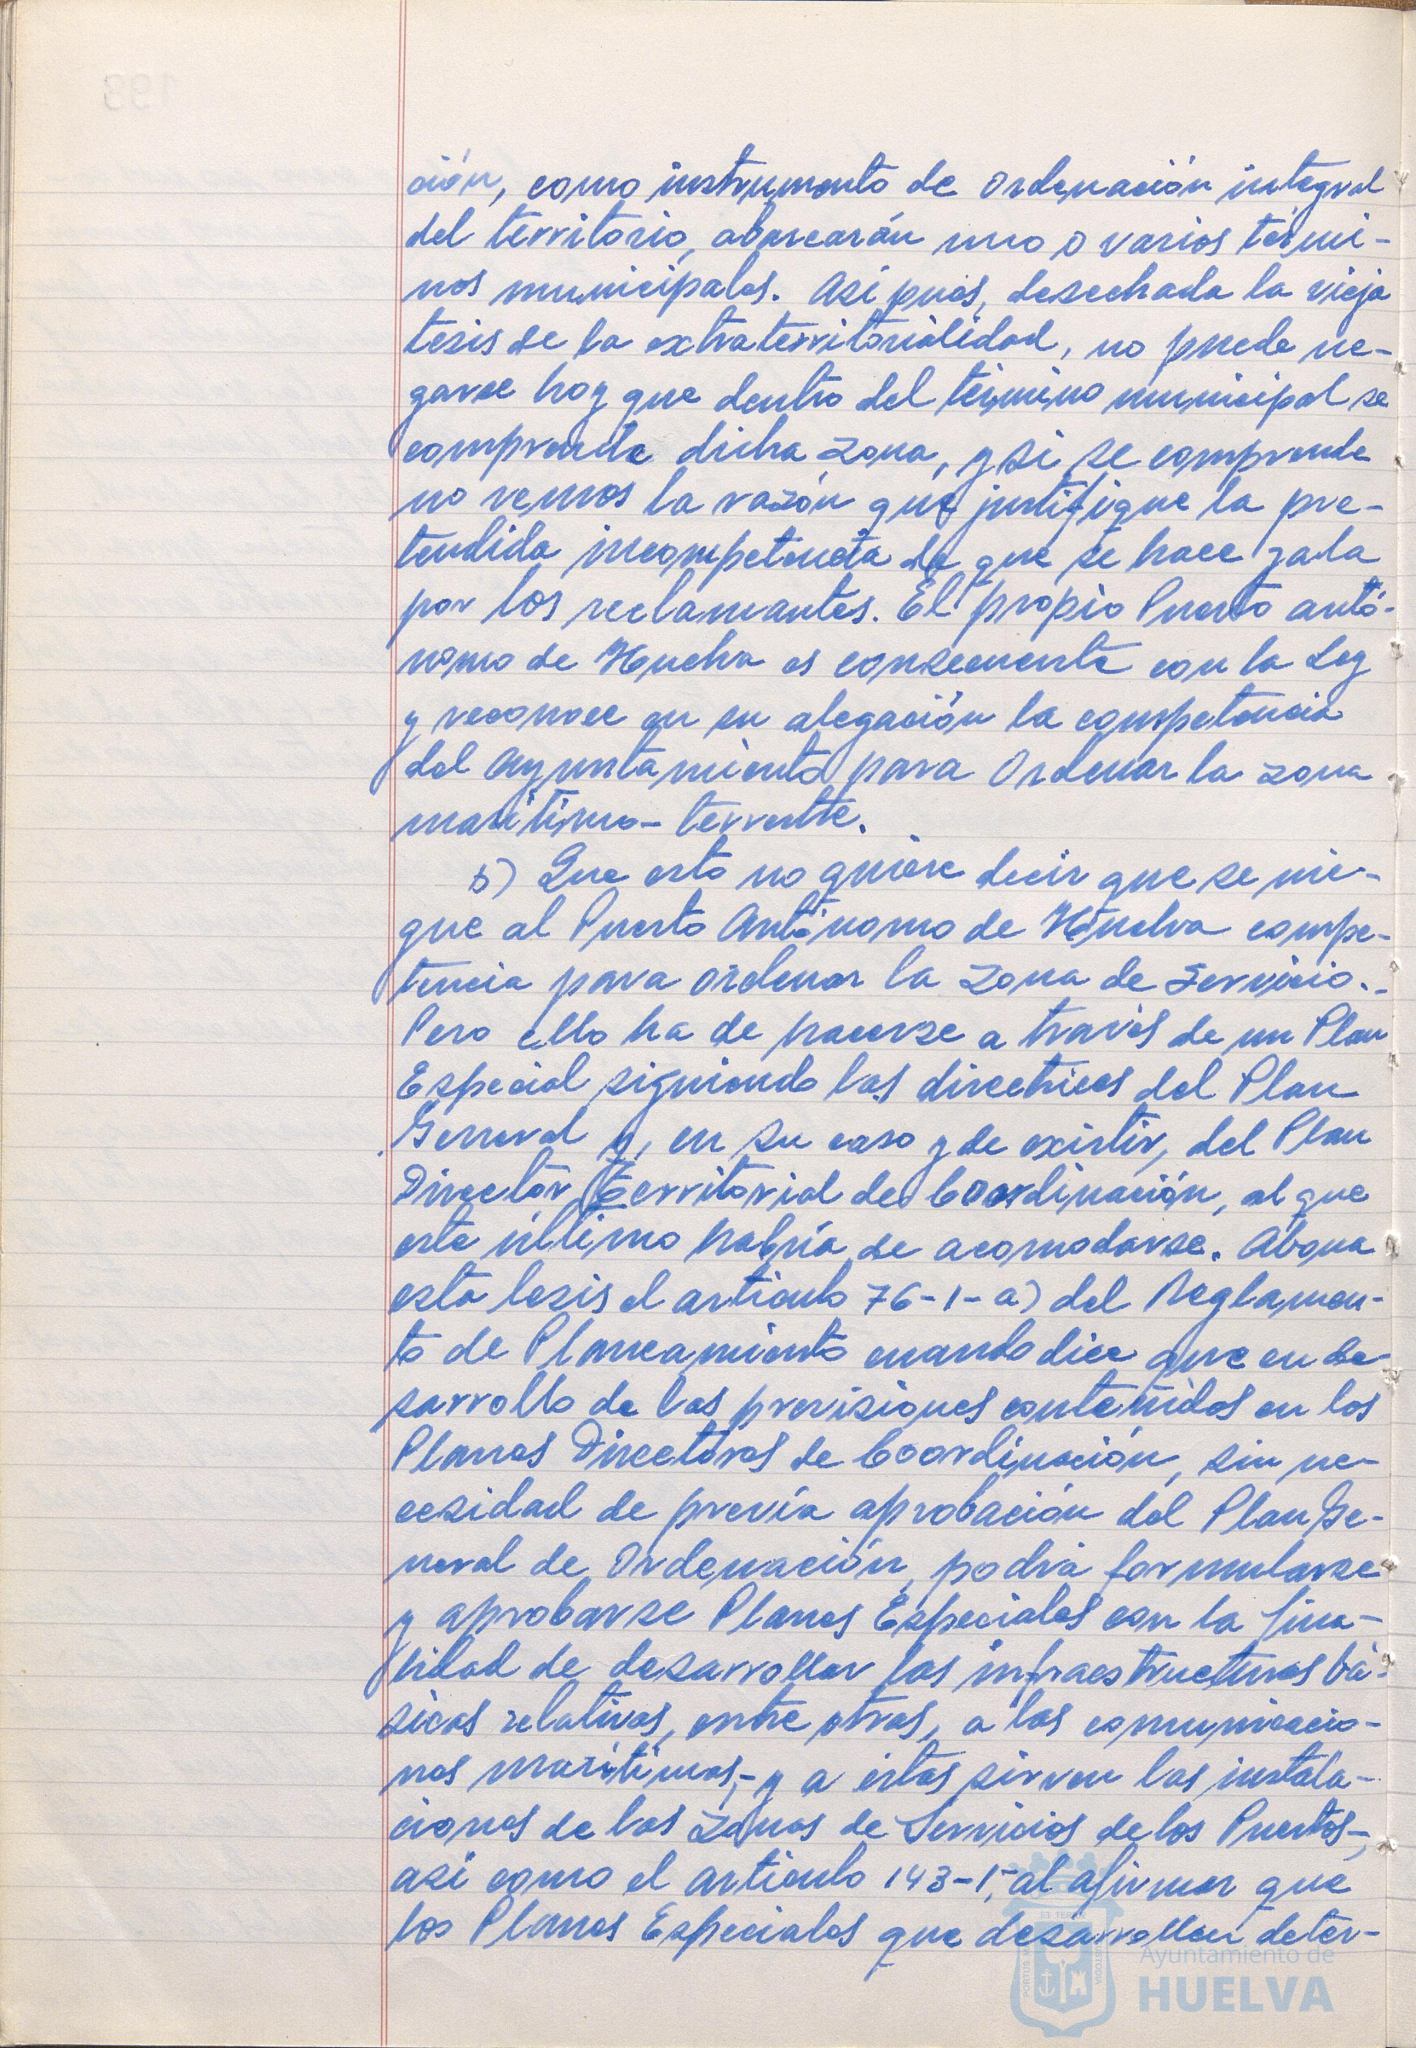 ción, como instrumento de ordenación integral
del territorio, abarcarán uno o varios térmi-
nos municipales. Así pues, desechada la vieja
tesis de la extraterritorialidad, no puede ne-
garse hoy que dentro del término municipal se
comprende dicha zona, y si se comprende
no vemos la razón que justifique la pre-
tendida incompetencia de que se hace gala
por los reclamantes. El propio Puerto autó-
nomo de Huelva es consecuente con la Ley
y reconoce en su alegación la competencia
del Ayuntamiento para ordenar la zona
marítimo-terrestre.
b) Que esto no quiere decir que se nie-
gue al Puerto Autónomo de Huelva compe-
tencia para ordenar la zona de Servicio.-
Pero ello ha de hacerse a través de un Plan
Especial siguiendo las directrices del Plan
General y, en su caso y de existir, del Plan
Director Territorial de Coordinación, al que
este último habría de acomodarse. Abona
esta tesis el artículo 76-1-a) del Reglamen-
to de Planeamiento cuando dice que en de-
sarrollo de las previsiones contenidas en los
Planes Directores de Coordinación, sin ne-
cesidad de previa aprobación del Plan Ge-
neral de Ordenación, podrá formularse
y aprobarse Planes Especiales con la fina-
lidad de desarrollar las infraestructuras bá-
sicas relativas, entre otras, a las comunicacio-
nes marítimas,-y a éstas sirven las instala-
ciones de las Zonas de Servicios de los Puertos-,
así como el artículo 143-1, al afirmar que
los Planes Especiales que desarrollen deter-
Ayuntamiento de
HUELVA